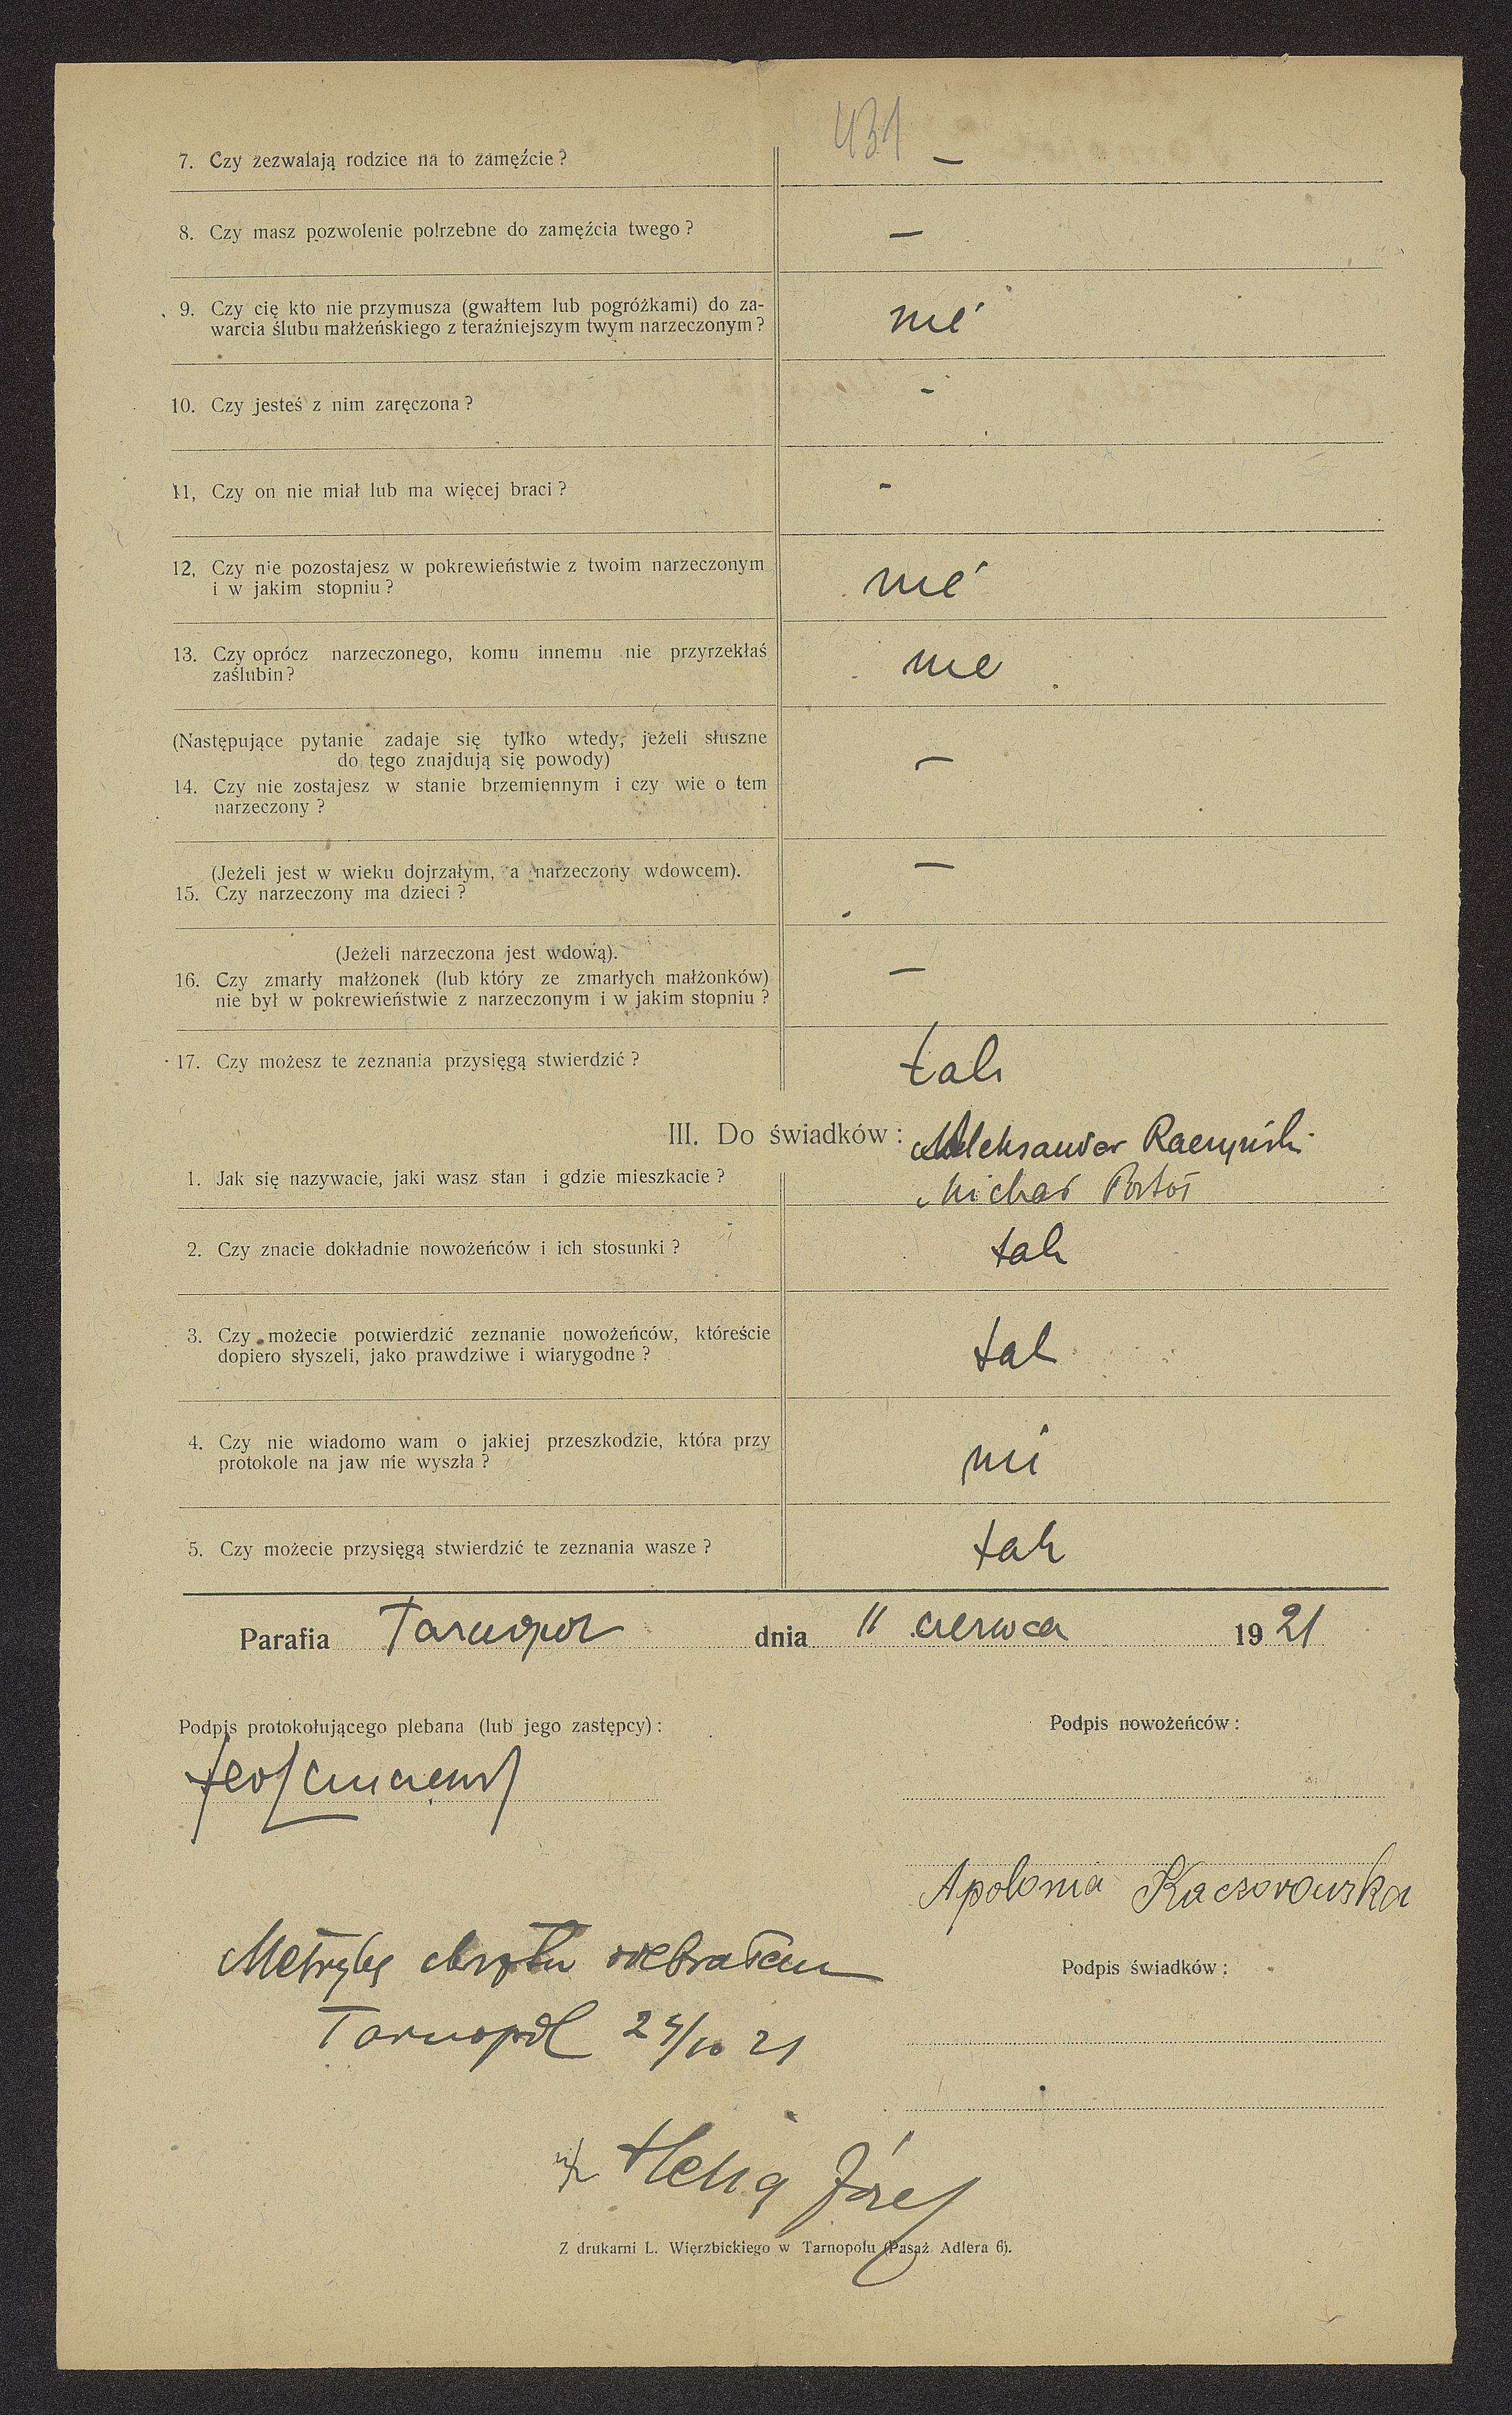 431
7. Czy zezwalają rodzice na to zamęźcie ? —
8. Czy masz pozwolenie potrzebne do zamęźcia twego ? —
9. Czy cię kto nie przymusza (gwałtem lub pogróżkami) do za-
warcia ślubu małżeńskiego z teraźniejszym twym narzeczonym ? nie
10. Czy jesteś z nim zaręczona ? -
11, Czy on nie miał lub ma więcej braci ? -
12, Czy nie pozostajesz w pokrewieństwie z twoim narzeczonym
i w jakim stopniu ? nie
13. Czy oprócz narzeczonego, komu innemu nie przyrzekłaś
zaślubin ? nie
(Następujące pytanie zadaje się tylko wtedy, jeżeli słuszne
do tego znajdują się powody)
14. Czy nie zostajesz w stanie brzemiennym i czy wie o tem
narzeczony ? —
(Jeżeli jest w wieku dojrzałym, a narzeczony wdowcem).
15. Czy narzeczony ma dzieci ? —
(Jeżeli narzeczona jest wdową).
16. Czy zmarły małżonek (lub który ze zmarłych małżonków)
nie był w pokrewieństwie z narzeczonym i w jakim stopniu ? —
17. Czy możesz te zeznania przysięgą stwierdzić ? tak
III. Do świadków : Aleksander Raczyński
1. Jak się nazywacie, jaki wasz stan i gdzie mieszkacie ? Michał
2. Czy znacie dokładnie nowożeńców i ich stosunki ? tak
3. Czy możecie potwierdzić zeznanie nowożeńców, któreście
dopiero słyszeli, jako prawdziwe i wiarygodne ? tak
4. Czy nie wiadomo wam o jakiej przeszkodzie, która przy
protokole na jaw nie wyszła ? nie
5. Czy możecie przysięgą stwierdzić te zeznania wasze ? tak
Parafia Tarnopol dnia 11 czerwca 1921
Podpis protokołującego plebana (lub jego zastępcy) :
Podpis nowożeńców :
Apolonia Kaczorowska
Metrykę chrztu odebrałem
Podpis świadków :
Tarnopol 24/10 21
Józef
Z drukarni L. Więrzbickiego w Tarnopolu (Pasaż Adlera 6).